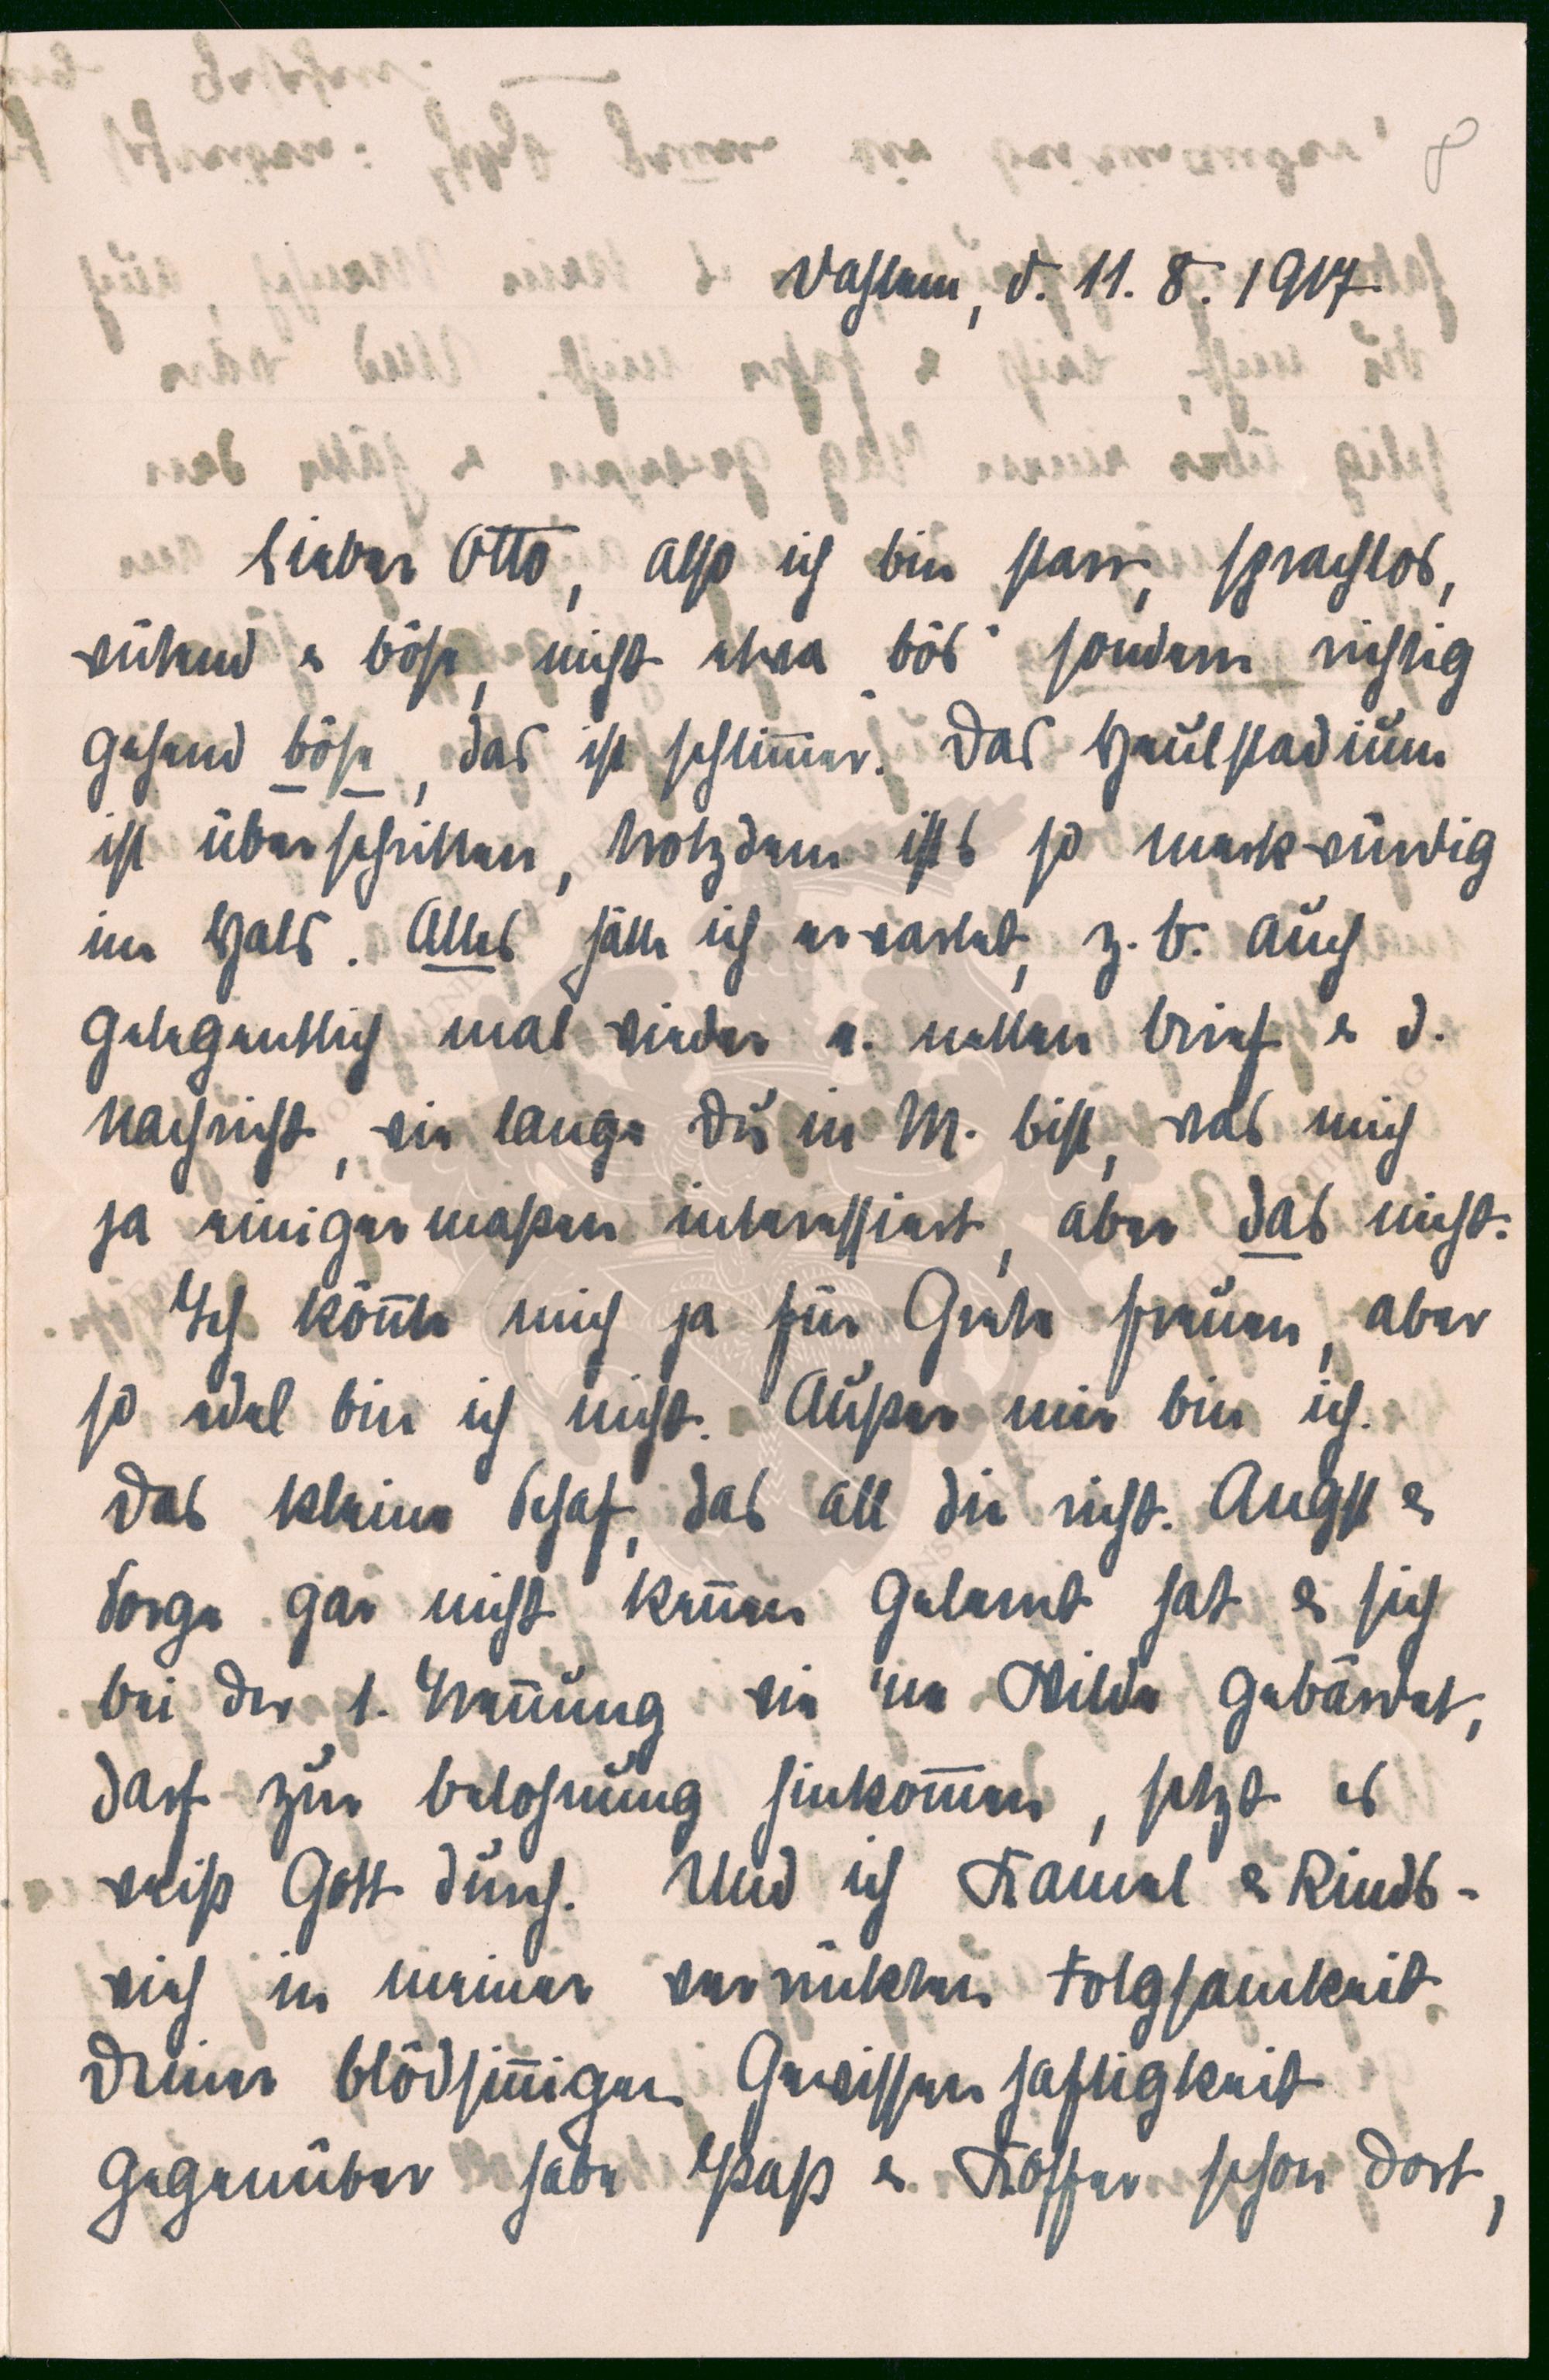 8
Dahlem, d. 11. 8. 1917
Lieber Otto, also ich bin starr, sprachlos,
wütend & böse, nicht etwa „bös“ sondern richtig
gehend böse, das ist schlimmer. Das Heulstadium
ist überschritten, trotzdem ists so merkwürdig
im Hals. Alles hätte ich erwartet, z. B. auch
gelegentlich mal wieder e. netten Brief & d.
Nachricht, wie lange Du in M. bist, was mich
ja einigermaßen interessiert, aber das nicht.
Ich kön̅te mich ja für Grete freuen, aber
so edel bin ich nicht. Außer mir bin ich.
Das kleine Schaf, das all die richt. Angst &
Sorge gar nicht ken̅en gelernt hat & sich
bei der 1. Tren̅ung wie 'ne Wilde gebärdet,
darf zur Belohnung hinkom̅en, setzt es
weiß Gott durch. Und ich Kamel & Rinds-
vieh in meiner verrückten Folgsamkeit
Deiner blödsin̅igen Gewissenhaftigkeit
gegenüber habe Paß & Koffer schon dort,